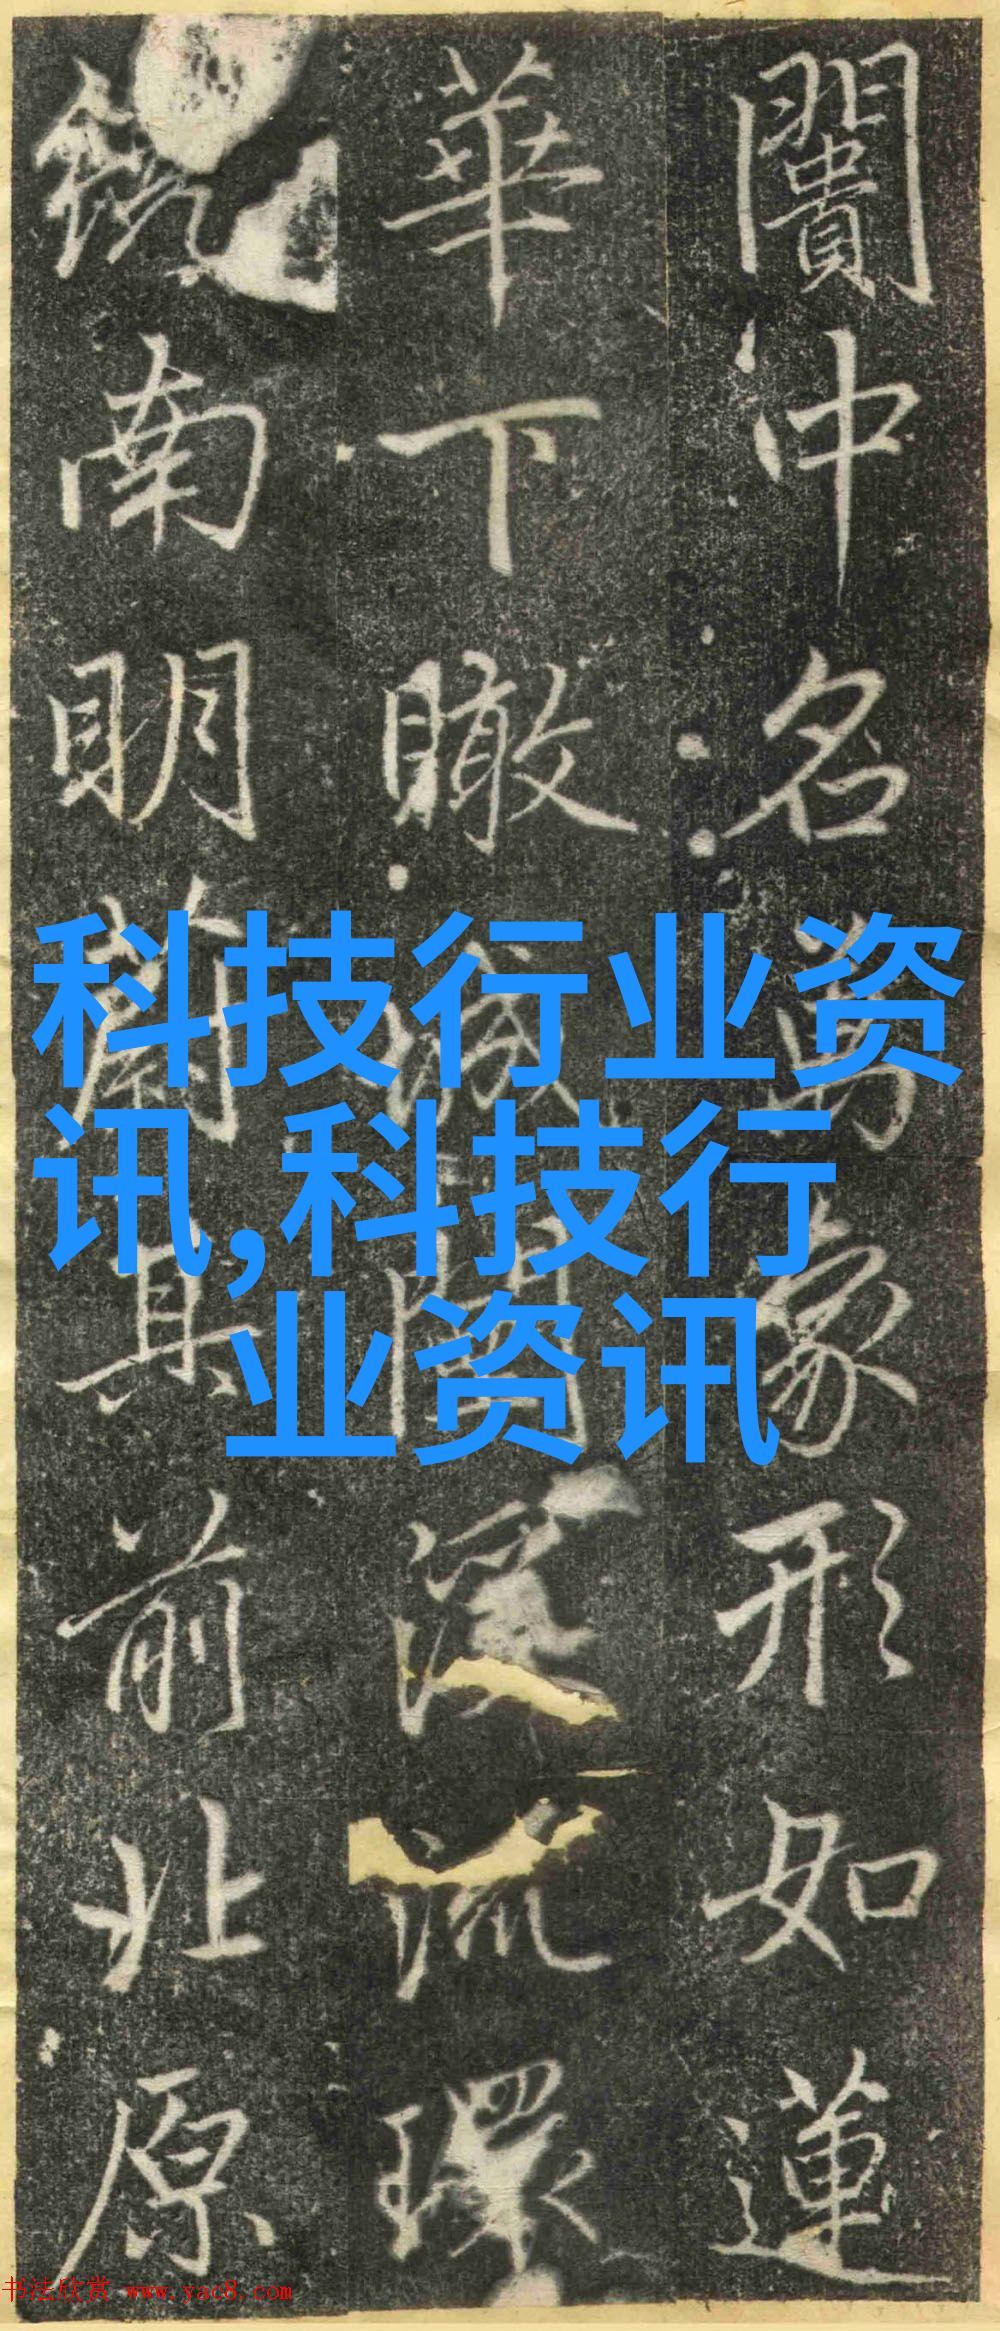 闠中名萬象形如蓮
華下瞰城闉深流環
鏡南明蔚其前北原
科技行业资
讯,科技行
业资讯
书法欣赏 www.yac8.com